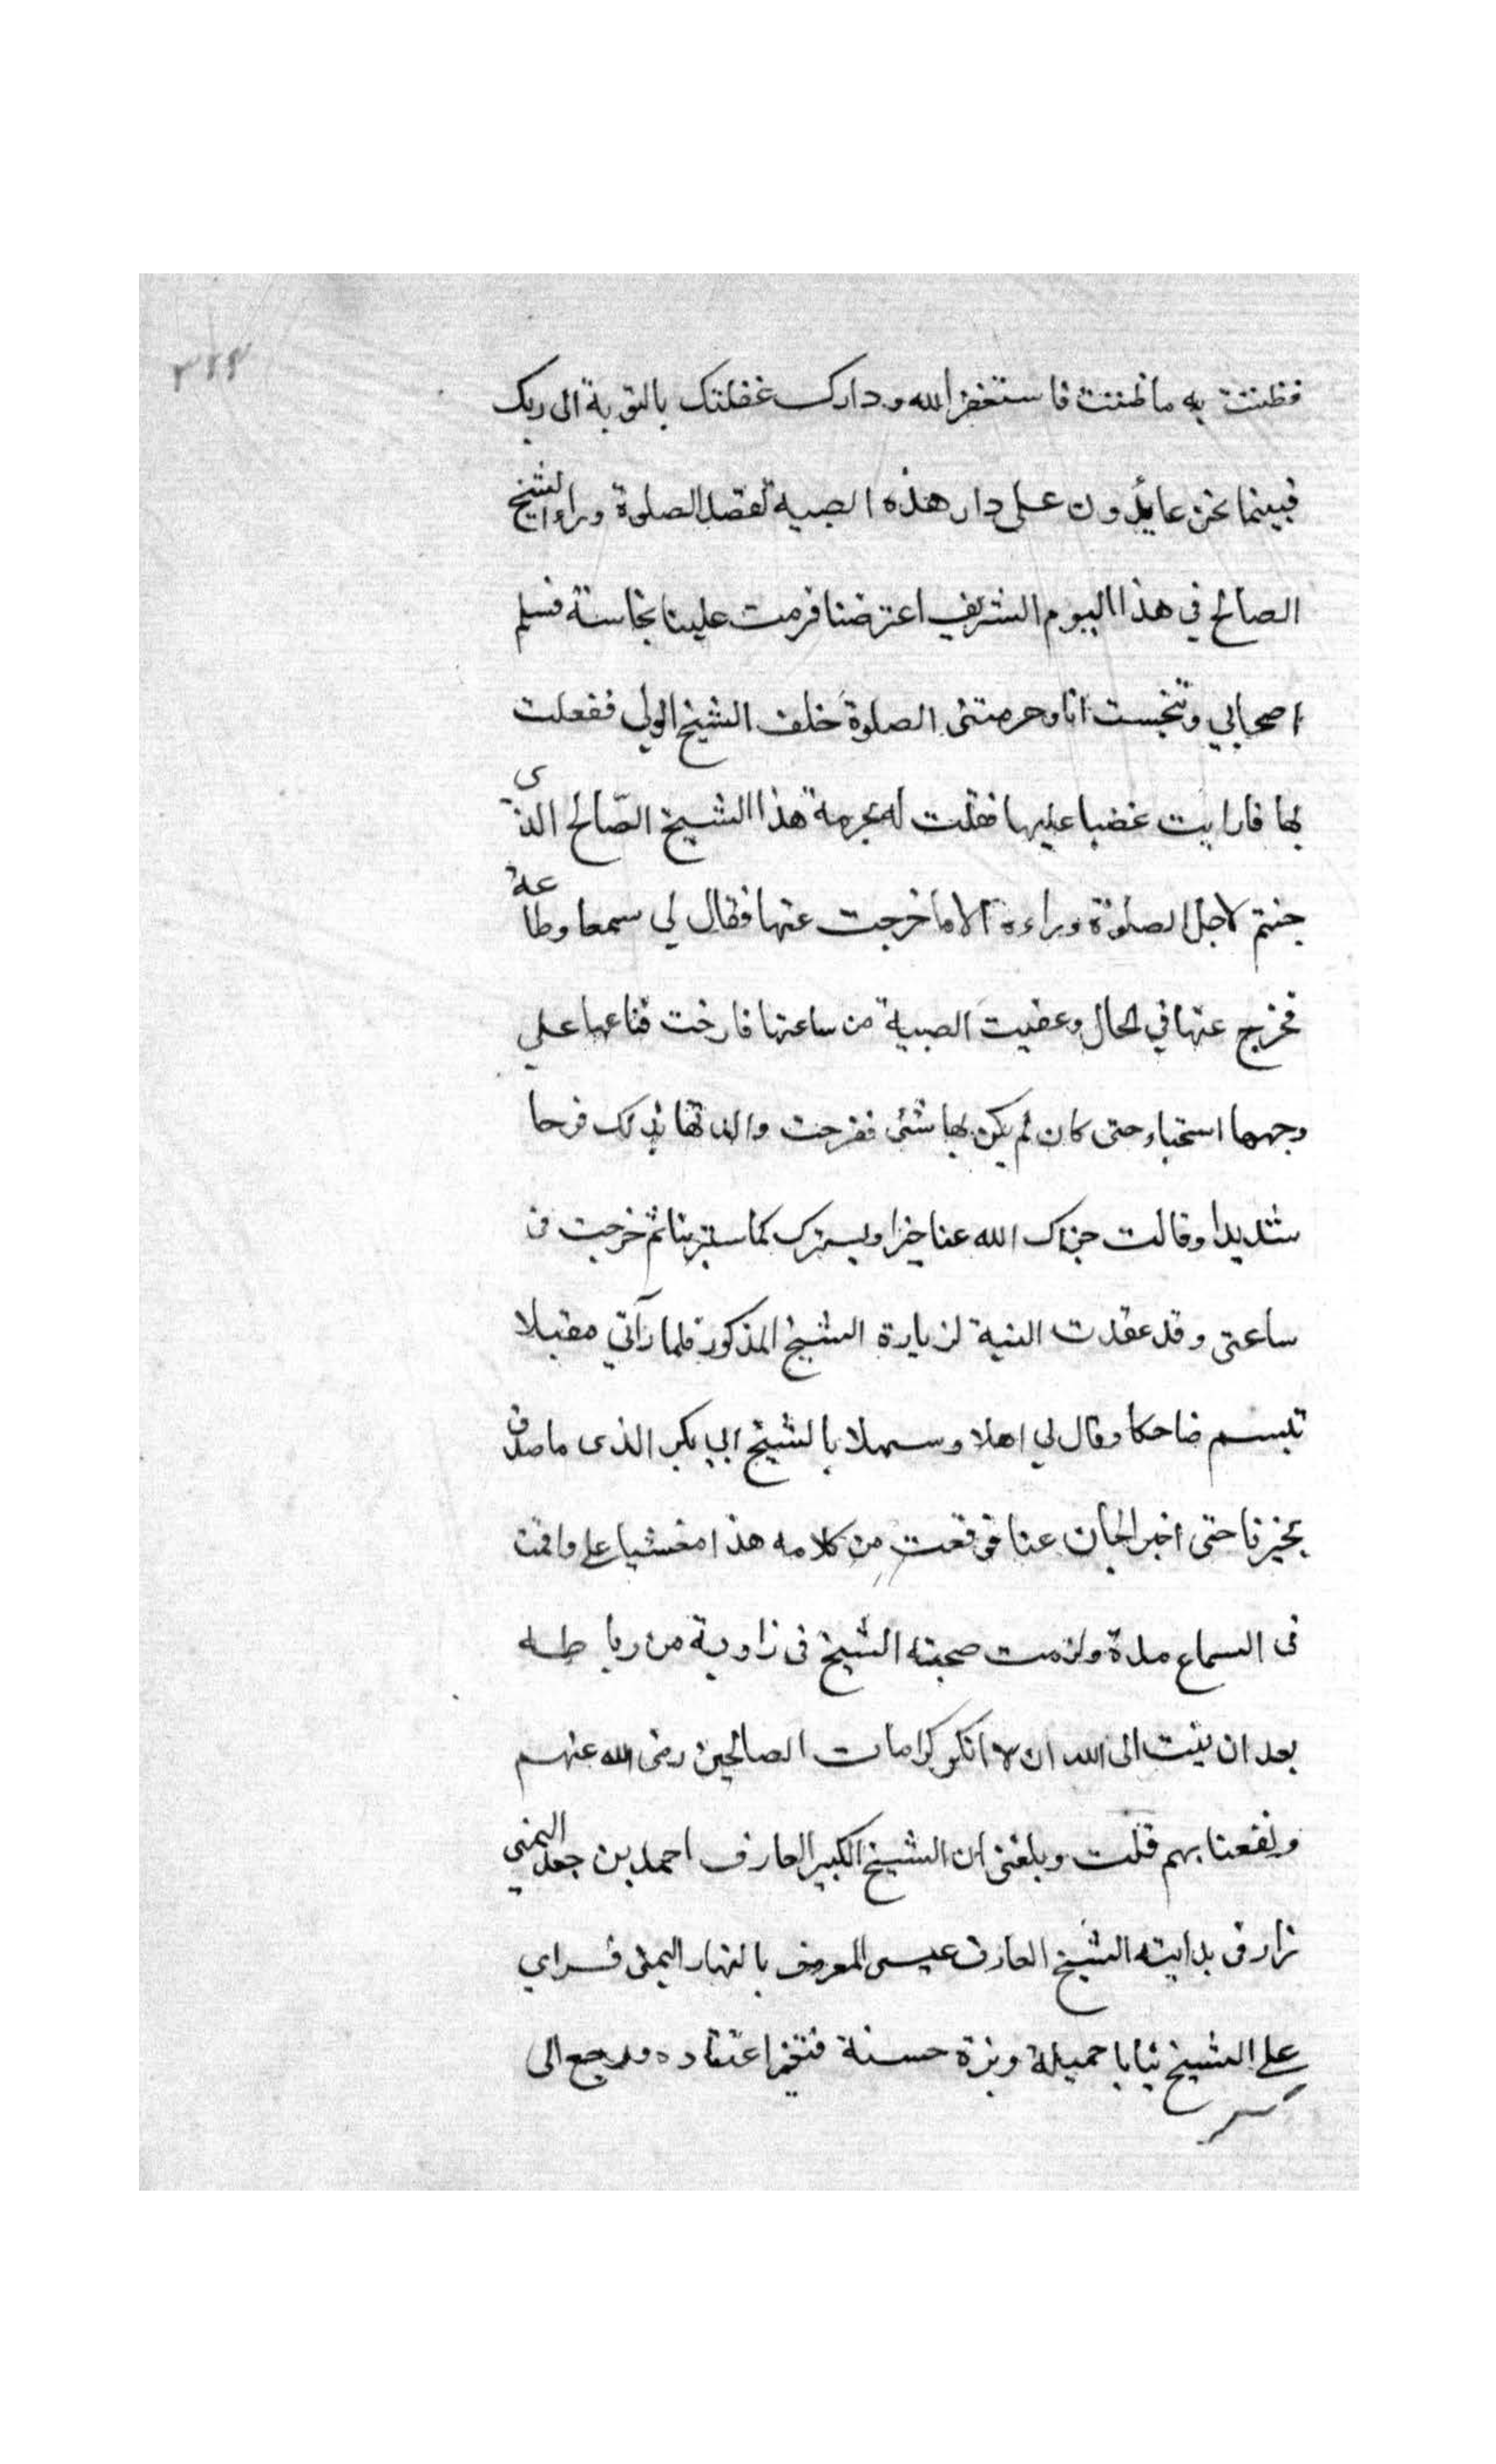 ٣٢٣
فظننت به ما ظننت فاستغفر الله ودارك غفلتك بالتوبة الى ربك
فبينما نحن عائدون على دار هذه الصبية لقصد الصلوة وراء الشيخ
الصالح في هذا اليوم الشريف اعترضنا فرمت علينا نجاسة فسلم
اصحابي وتنجست انا وحرمتنى الصلوة خلف الشيخ الولي ففعلت
بها ما رايت غضبا عليها فقلت له بحرمة هذا الشيخ الصّالح الذى
جئتم لاجل الصلوة وراءه الا ما خرجت عنها فقال لي سمعا وطاعة
فخرج عنها في الحال وعفيت الصبية من ساعتها فارخت قناعها على
وجهها استحياء حتى كان لم يكن بها شئ ففرحت والدتها بذلك فرحا
شديدا وقالت جزاك الله عنا خيرا وسترك كما سترتنا ثم خرجت من
ساعتى وقد عقدت النية لزيارة الشيخ المذكور فلما رآني مقبلا
تبسم ضاحكا وقال لي اهلا وسهلا بالشيخ ابي بكر الذى ما صدق
بخبرنا حتى اخبر الجان عنا فوقعت من كلامه هذا مغشيا على واقمت
فى السماع مدة ولزمت صحبته الشيخ فى زاوية من رباطه
بعد ان تبت الى الله ان لا انكر كرامات الصالحين رضى الله عنهم
ونفعنا بهم قلت وبلغنى ان الشيخ الكبير العارف احمد بن جعد اليمني
زار فى بدايته الشيخ العارف عيسى المعروف بالهتار اليمنى فراي
على الشيخ ثيابا جميلة وبزة حسنة فتغير اعتقاده ورجع الى